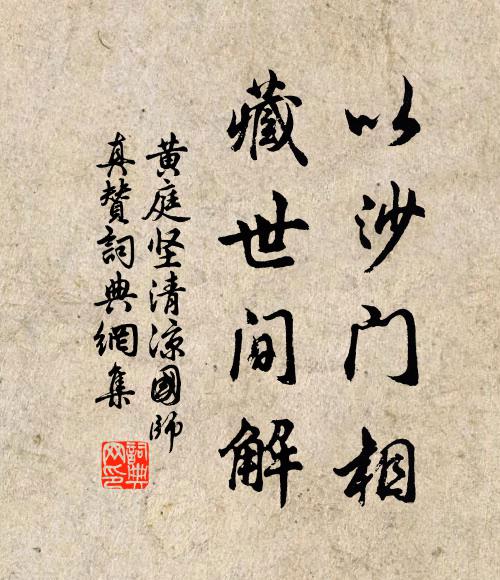 以沙门相
藏世间解
黄庭坚清凉國师
真赞詞典網集
詞典
网印